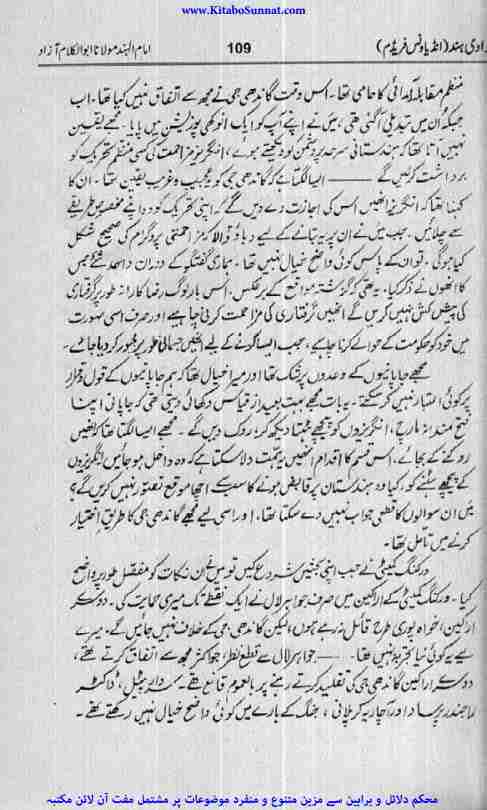 www.KitaboSunnat.com
زادی ہند (انڈیا ونس فریڈم) 109 امام الہند مولانا ابوالکلام آزاد
منظم مقابلہ آرائی کا حامی تھا۔ اس وقت گاندھی جی نے مجھ سے اتفاق نہیں کیا تھا۔ اب
جبکہ اُن میں تبدیلی آگئی تھی، میں نے اپنے آپ کو ایک انوکھی پوزیشن میں پایا۔ مجھے یقین
نہیں آتا تھا کہ ہندستانی سرحد پر دشمن کو دیکھتے ہوئے، انگریز مزاحمت کی کسی منظم تحریک کو
برداشت کرلیں گے ——— ایسا لگتا ہے کہ گاندھی جی کو عجیب و غریب یقین تھا۔ ان کا
کہنا تھا کہ انگریز انھیں اس کی اجازت دے دیں گے کہ اپنی تحریک کو وہ اپنے مخصوص طریقے
سے چلائیں۔ جب میں نے ان پر یہ بتانے کے لیے دباؤ ڈالا کہ مزاحمتی پروگرام کی صحیح شکل
کیا ہوگی، تو ان کے پاس کوئی واضح خیال نہیں تھا۔ ہماری گفتگو کے دوران واحد شے جس
کا انھوں نے ذکر کیا، یہ تھی کہ گزشتہ مواقع کے برعکس، اس بار لوگ رضاکارانہ طور پر گرفتاری
کی پیش کش نہیں کریں گے انھیں گرفتاری کی مزاحمت کرنی چاہیے اور صرف اسی صورت
میں خود کو حکومت کے حوالے کرنا چاہیے، جب ایسا کرنے کے لیے انھیں جسمانی طور پر مجبور کر دیا جائے۔
مجھے جاپانیوں کے وعدوں پر شک تھا اور میرا خیال تھا کہ ہم جاپانیوں کے قول و قرار
پر کوئی اعتبار نہیں کر سکتے۔ یہ بات مجھے بہت بعید از قیاس دکھائی دیتی تھی کہ جاپانی اپنا
فتح مندانہ مارچ، انگریزوں کو پیچھے ہٹتا دیکھ کر، روک دیں گے۔ مجھے ایسا لگتا تھا کہ انھیں
روکنے کے بجائے، اس قسم کا اقدام انھیں یہ ہمت دلا سکتا ہے کہ وہ داخل ہو جائیں انگریزوں
کے پیچھے ہٹنے کو، کیا وہ ہندستان پر قابض ہونے کا سب سے اچھا موقع تصور نہیں کریں گے؟
میں ان سوالوں کا قطعی جواب نہیں دے سکتا تھا، اور اسی لیے مجھے گاندھی جی کا طریق اختیار
کرنے میں تامل تھا۔
ورکنگ کمیٹی نے جب اپنی بحثیں شروع کیں تو میں نے ان نکات کو مفصل طور پر واضح
کیا۔ ورکنگ کمیٹی کے اراکین میں صرف جواہر لال نے ایک نقطے تک میری حمایت کی۔ دوسرے
اراکین، خواہ پوری طرح قائل نہ رہے ہوں، لیکن گاندھی جی کے خلاف نہیں جائیں گے۔ میرے
لیے یہ کوئی نیا تجربہ نہیں تھا۔ —— جواہر لال سے قطع نظر، جو اکثر مجھ سے اتفاق کرتے تھے،
دوسرے اراکین گاندھی جی کی تقلید کرتے رہنے پر بالعموم قانع تھے۔ سردار پٹیل، ڈاکٹر
راجندر پرساد اور آچاریہ کرپلانی، جنگ کے بارے میں کوئی واضح خیال نہیں رکھتے تھے۔
محکم دلائل و براہین سے مزین متنوع و منفرد موضوعات پر مشتمل مفت آن لائن مکتبہ